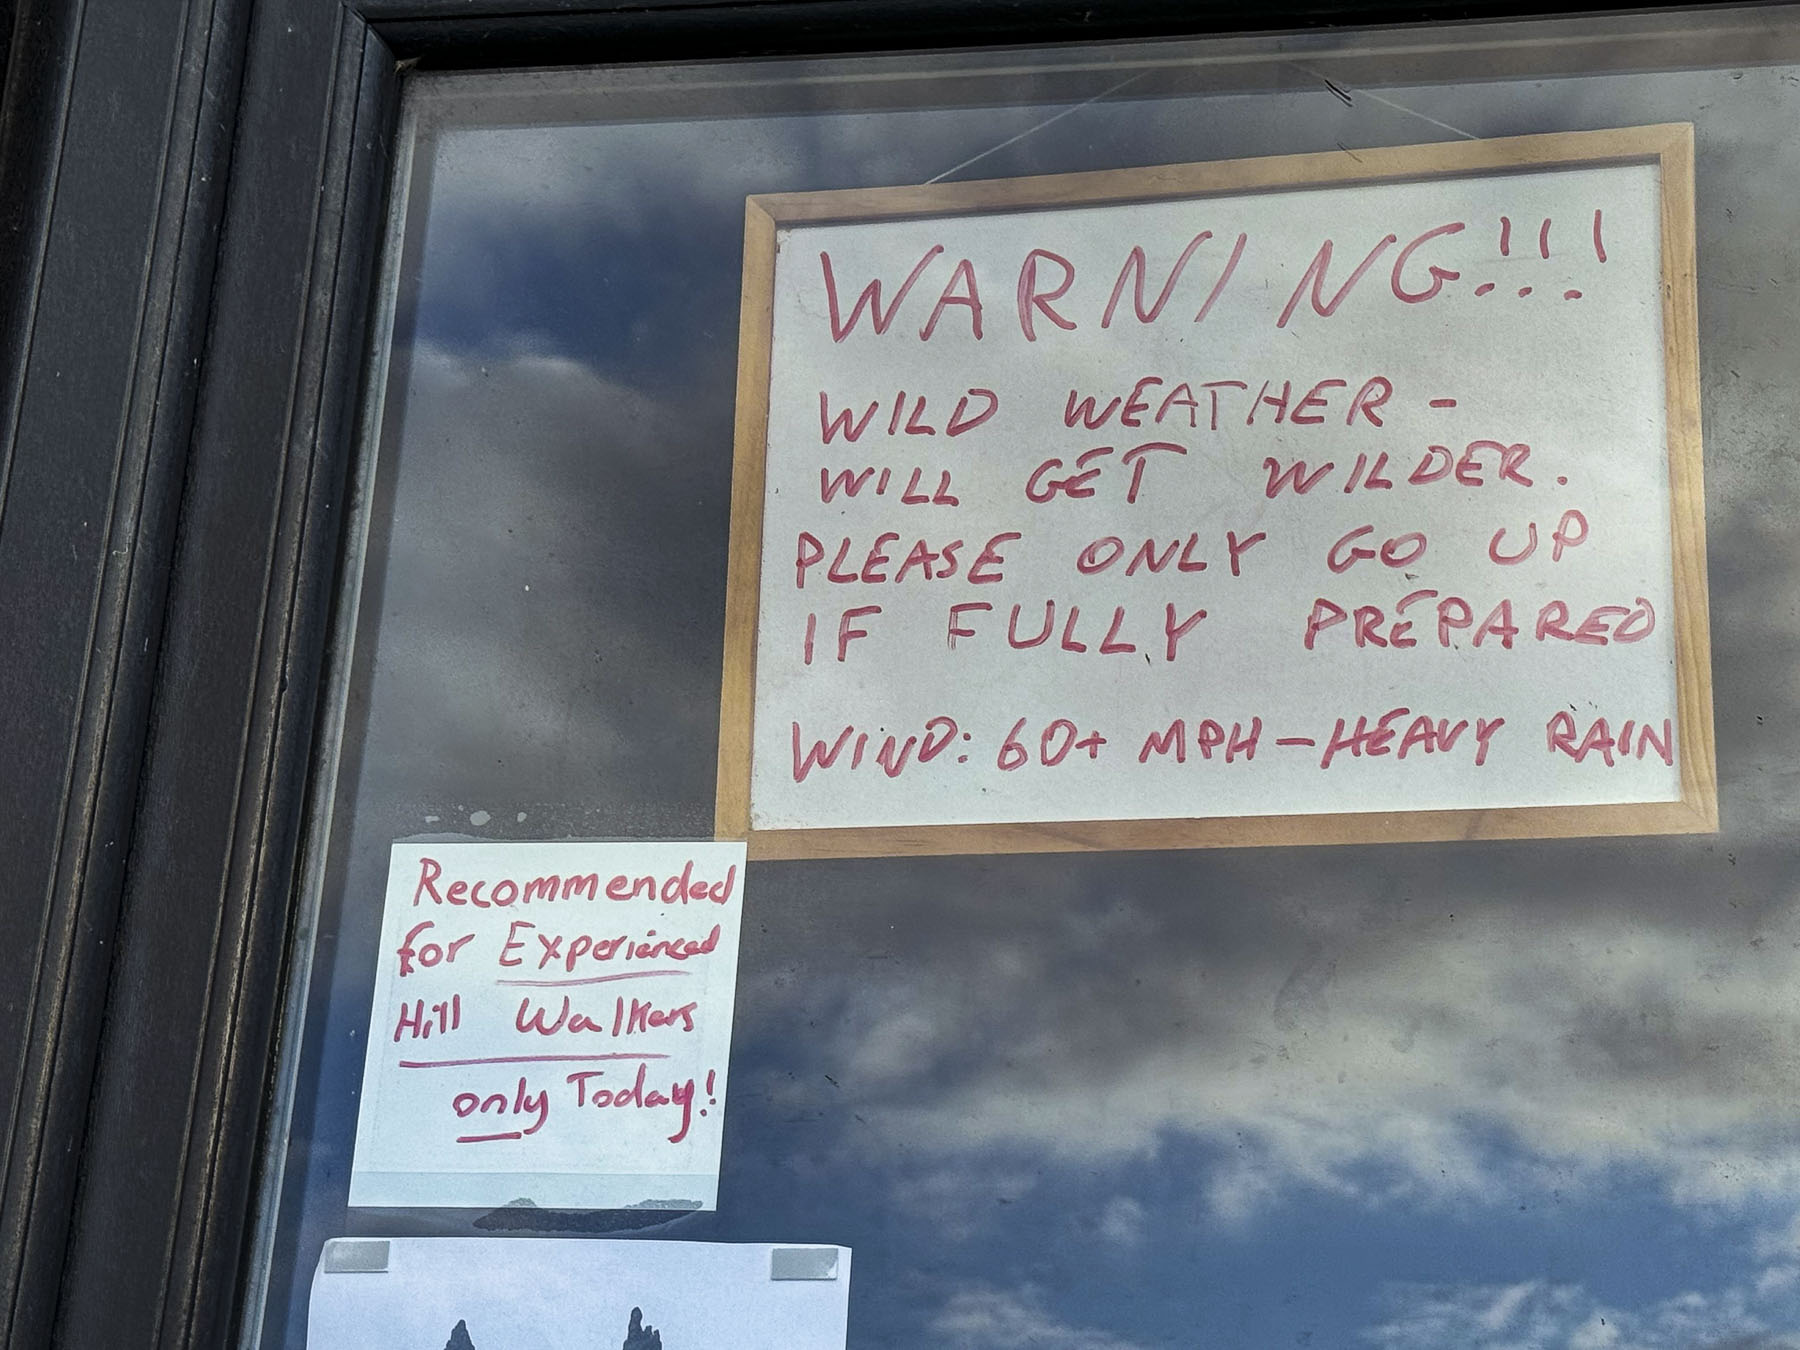 WARNING!!!
WILD WEATHER -
WILL GET WILDER.
PLEASE ONLY GO UP
IF FULLY PREPARED
WIND: 60+ MPH - HEAVY RAIN
Recommended
for Experienced
Hill Walkers
only Today!